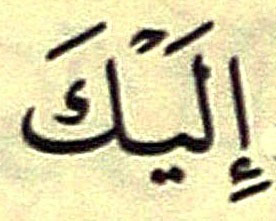 إِلَيْكَ